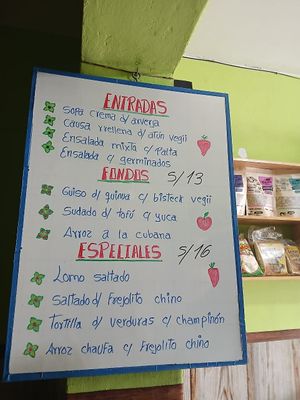 ENTRADAS
Sopa crema d/ arverja
Causa rrellena d/ atún vegii
Ensalada mixta c/ Palta
Ensalada c/ germinados
FONDOS S/13
Guiso d/ quinua c/ bisteck vegii
Sudado d/ tofú c/ yuca
Arroz a la cubana
ESPECIALES S/16
Lomo saltado
Saltado d/ Frejolito chino
Tortilla d/ verduras c/ champiñón
Arroz chaufa c/ Frejolito chino